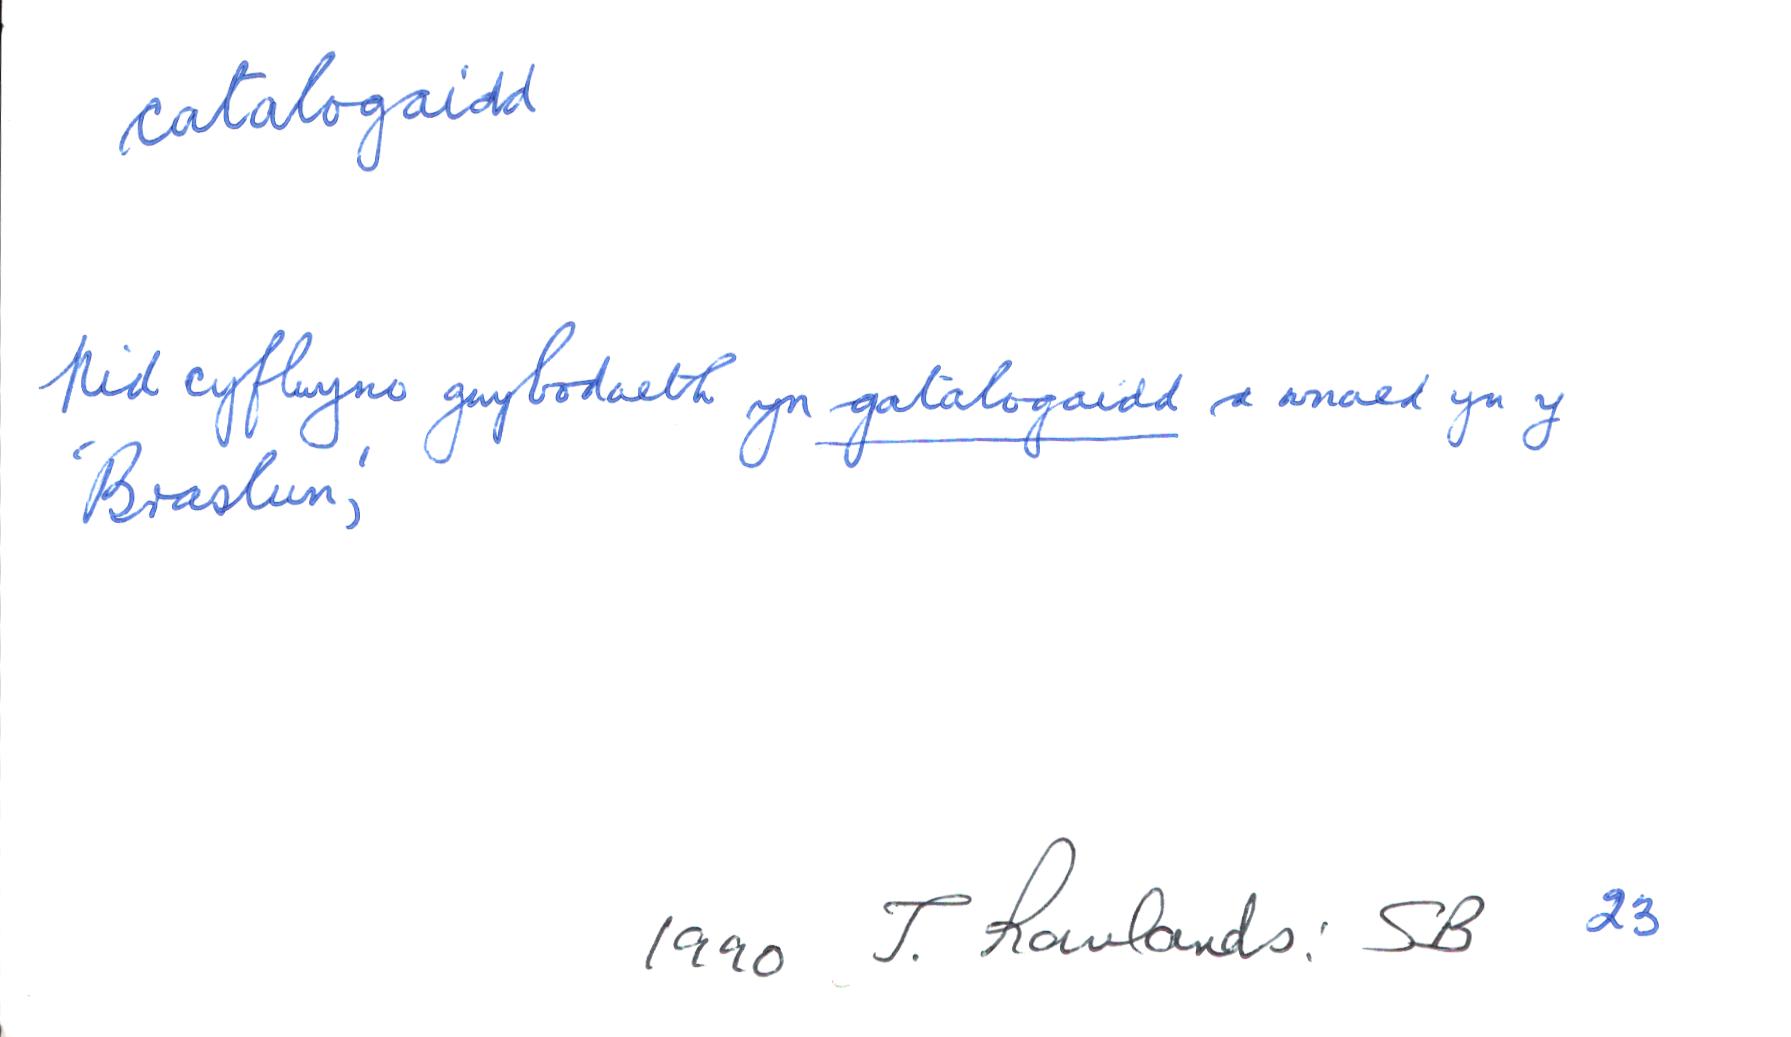 catalogaidd
Nid cyflwyno gwybodaeth yn gatalogaidd a wnaed yn y
'Braslun,'
1990 J. Rowlands: SB 23